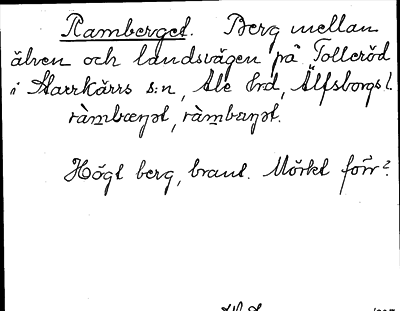 Ramberget. Berg mellan
älven och landsvägen på Tolleröd
i Starrkärrs s:n, Ale hrd, Älfsborgs l.
ràmbæŋət, ràmbæŋət.
Högt berg, brant. Mörkt förr?